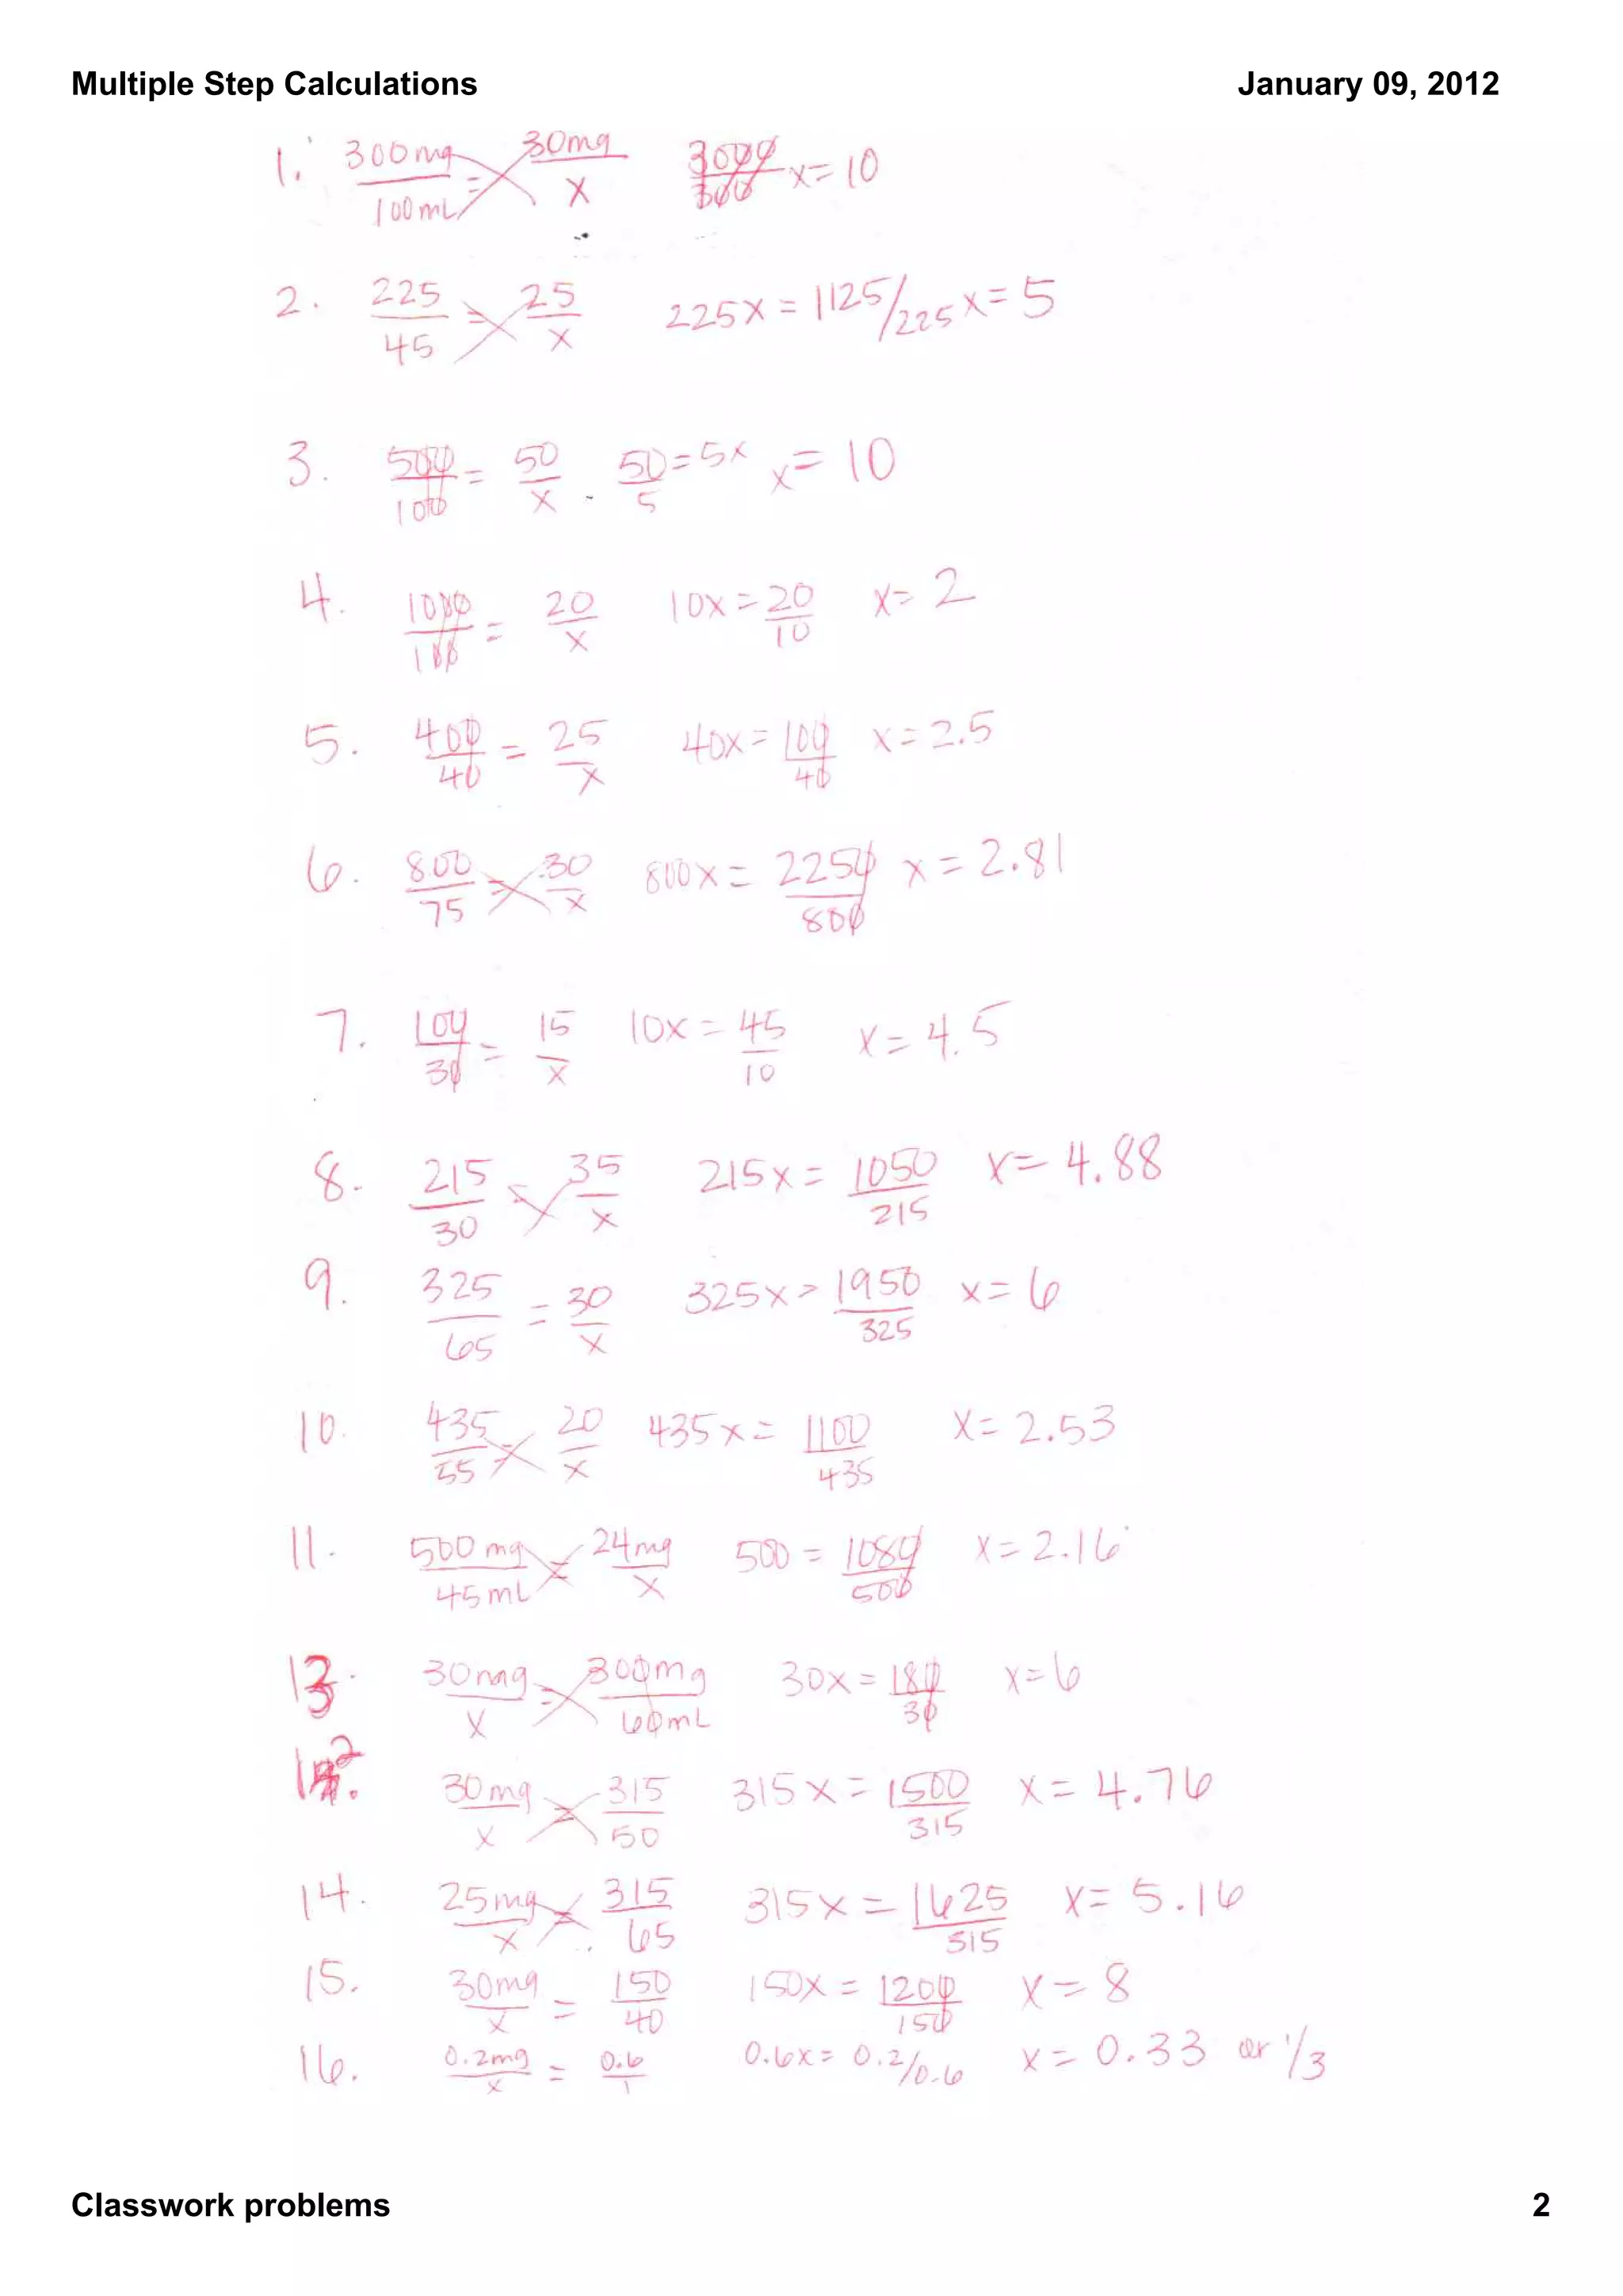 Multiple Step Calculations January 09, 2012
1. 300mg/100mL = 30mg/x 3000/300 x=10
2. 225/45 = 25/x 225x = 1125/225 x=5
3. 500/100 = 50/x 50/5 = 5x x=10
4. 1000/100 = 20/x 10x = 20/10 x=2
5. 400/40 = 25/x 40x = 100/40 x=2.5
6. 800/75 = 30/x 800x = 2250/800 x=2.81
7. 100/30 = 15/x 10x = 45/10 x=4.5
8. 215/30 = 35/x 215x = 1050/215 x=4.88
9. 325/65 = 30/x 325x = 1950/325 x=6
10. 435/55 = 20/x 435x = 1100/435 x=2.53
11. 500mg/45mL = 24mg/x 500 = 1080/500 x=2.16
13. 30mg/x = 300mg/60mL 30x = 180/30 x=6
12. 30mg/x = 315/50 315x = 1500/315 x=4.76
14. 25mg/x = 315/65 315x = 1625/315 x=5.16
15. 30mg/x = 150/40 150x = 1200/150 x=8
16. 0.2mg/x = 0.6/1 0.6x = 0.2/0.6 x=0.33 or 1/3
Classwork problems 2